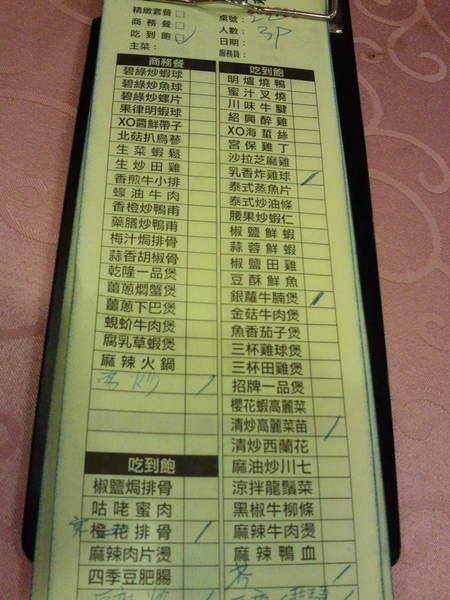 精緻套餐□
商務餐□
吃到飽□
主菜：
桌號：
人數：3P
日期：
服務員：
商務餐
碧綠炒蝦球
碧綠炒魚球
碧綠炒螺片
果律明蝦球
XO醬鮮帶子
北菇扒烏蔘
生菜蝦鬆
生炒田雞
香煎牛小排
蠔油牛肉
香橙炒鴨甫
藥膳炒鴨甫
梅汁焗排骨
蒜香胡椒骨
乾隆一品煲
薑蔥燜蟹煲
薑蔥下巴煲
蜆蚧牛肉煲
腐乳草蝦煲
麻辣火鍋
吃到飽
椒鹽焗排骨
咕咾蜜肉
橙花排骨
麻辣肉片燙
四季豆肥腸
吃到飽
明爐燒鴨
蜜汁叉燒
川味牛腱
紹興醉雞
XO海蜇絲
宮保雞丁
沙拉芝麻雞
乳香炸雞球
泰式蒸魚片
泰式炒油條
腰果炒蝦仁
椒鹽鮮蝦
蒜蓉鮮蝦
椒鹽田雞
豆酥鮮魚
銀蘿牛腩煲
金菇牛肉煲
魚香茄子煲
三杯雞球煲
三杯田雞煲
招牌一品煲
櫻花蝦高麗菜
清炒高麗菜苗
清炒西蘭花
麻油炒川七
涼拌龍鬚菜
黑椒牛柳條
麻辣牛肉燙
麻辣鴨血